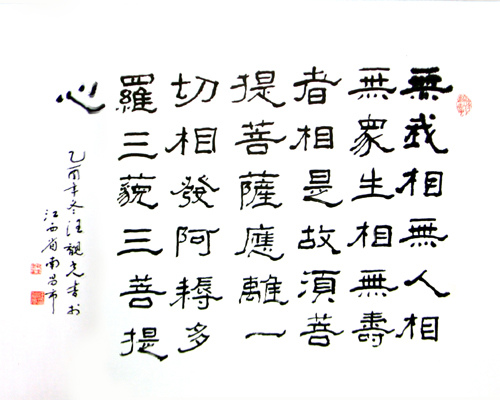 無我相無人相
無衆生相無壽
者相是故須菩
提菩薩應離一
切相發阿耨多
羅三藐三菩提
心
乙酉年冬汪光書於
江西省南昌市